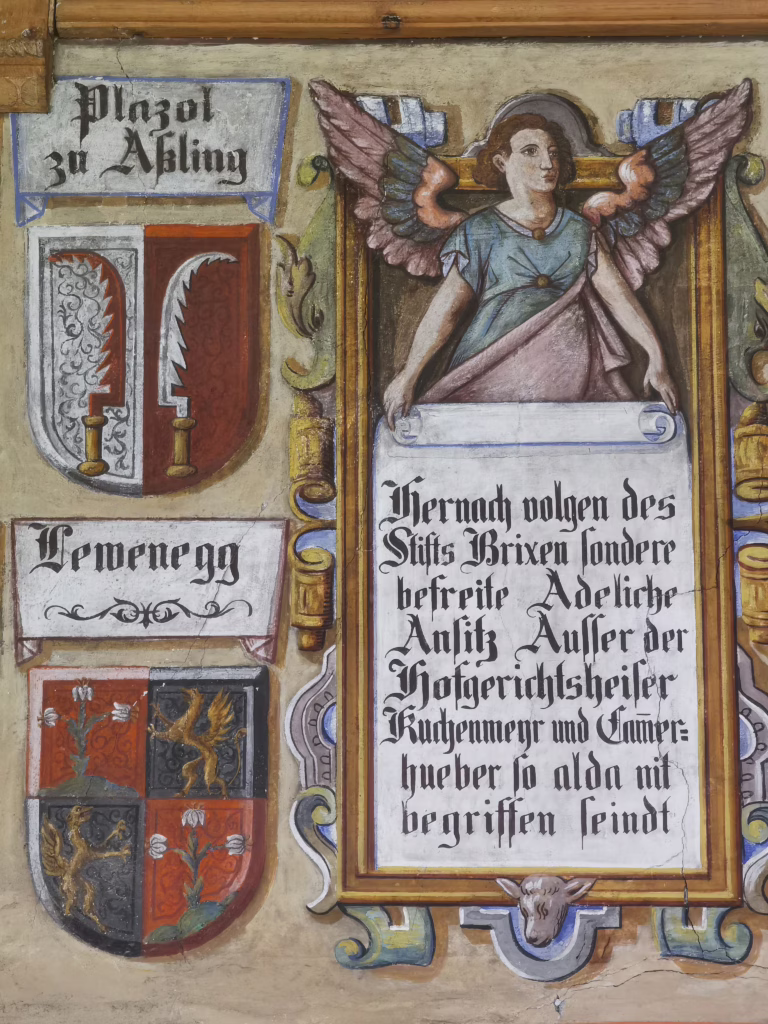 Plazol
zu Aßling
Lewenegg
Hernach volgen des
Stifts Brixen sondere
befreite Adeliche
Ansitz Ausser der
Hofgerichtsheiser
Kuchenmeyr und Cam̅er=
hueber so alda nit
begriffen seindt